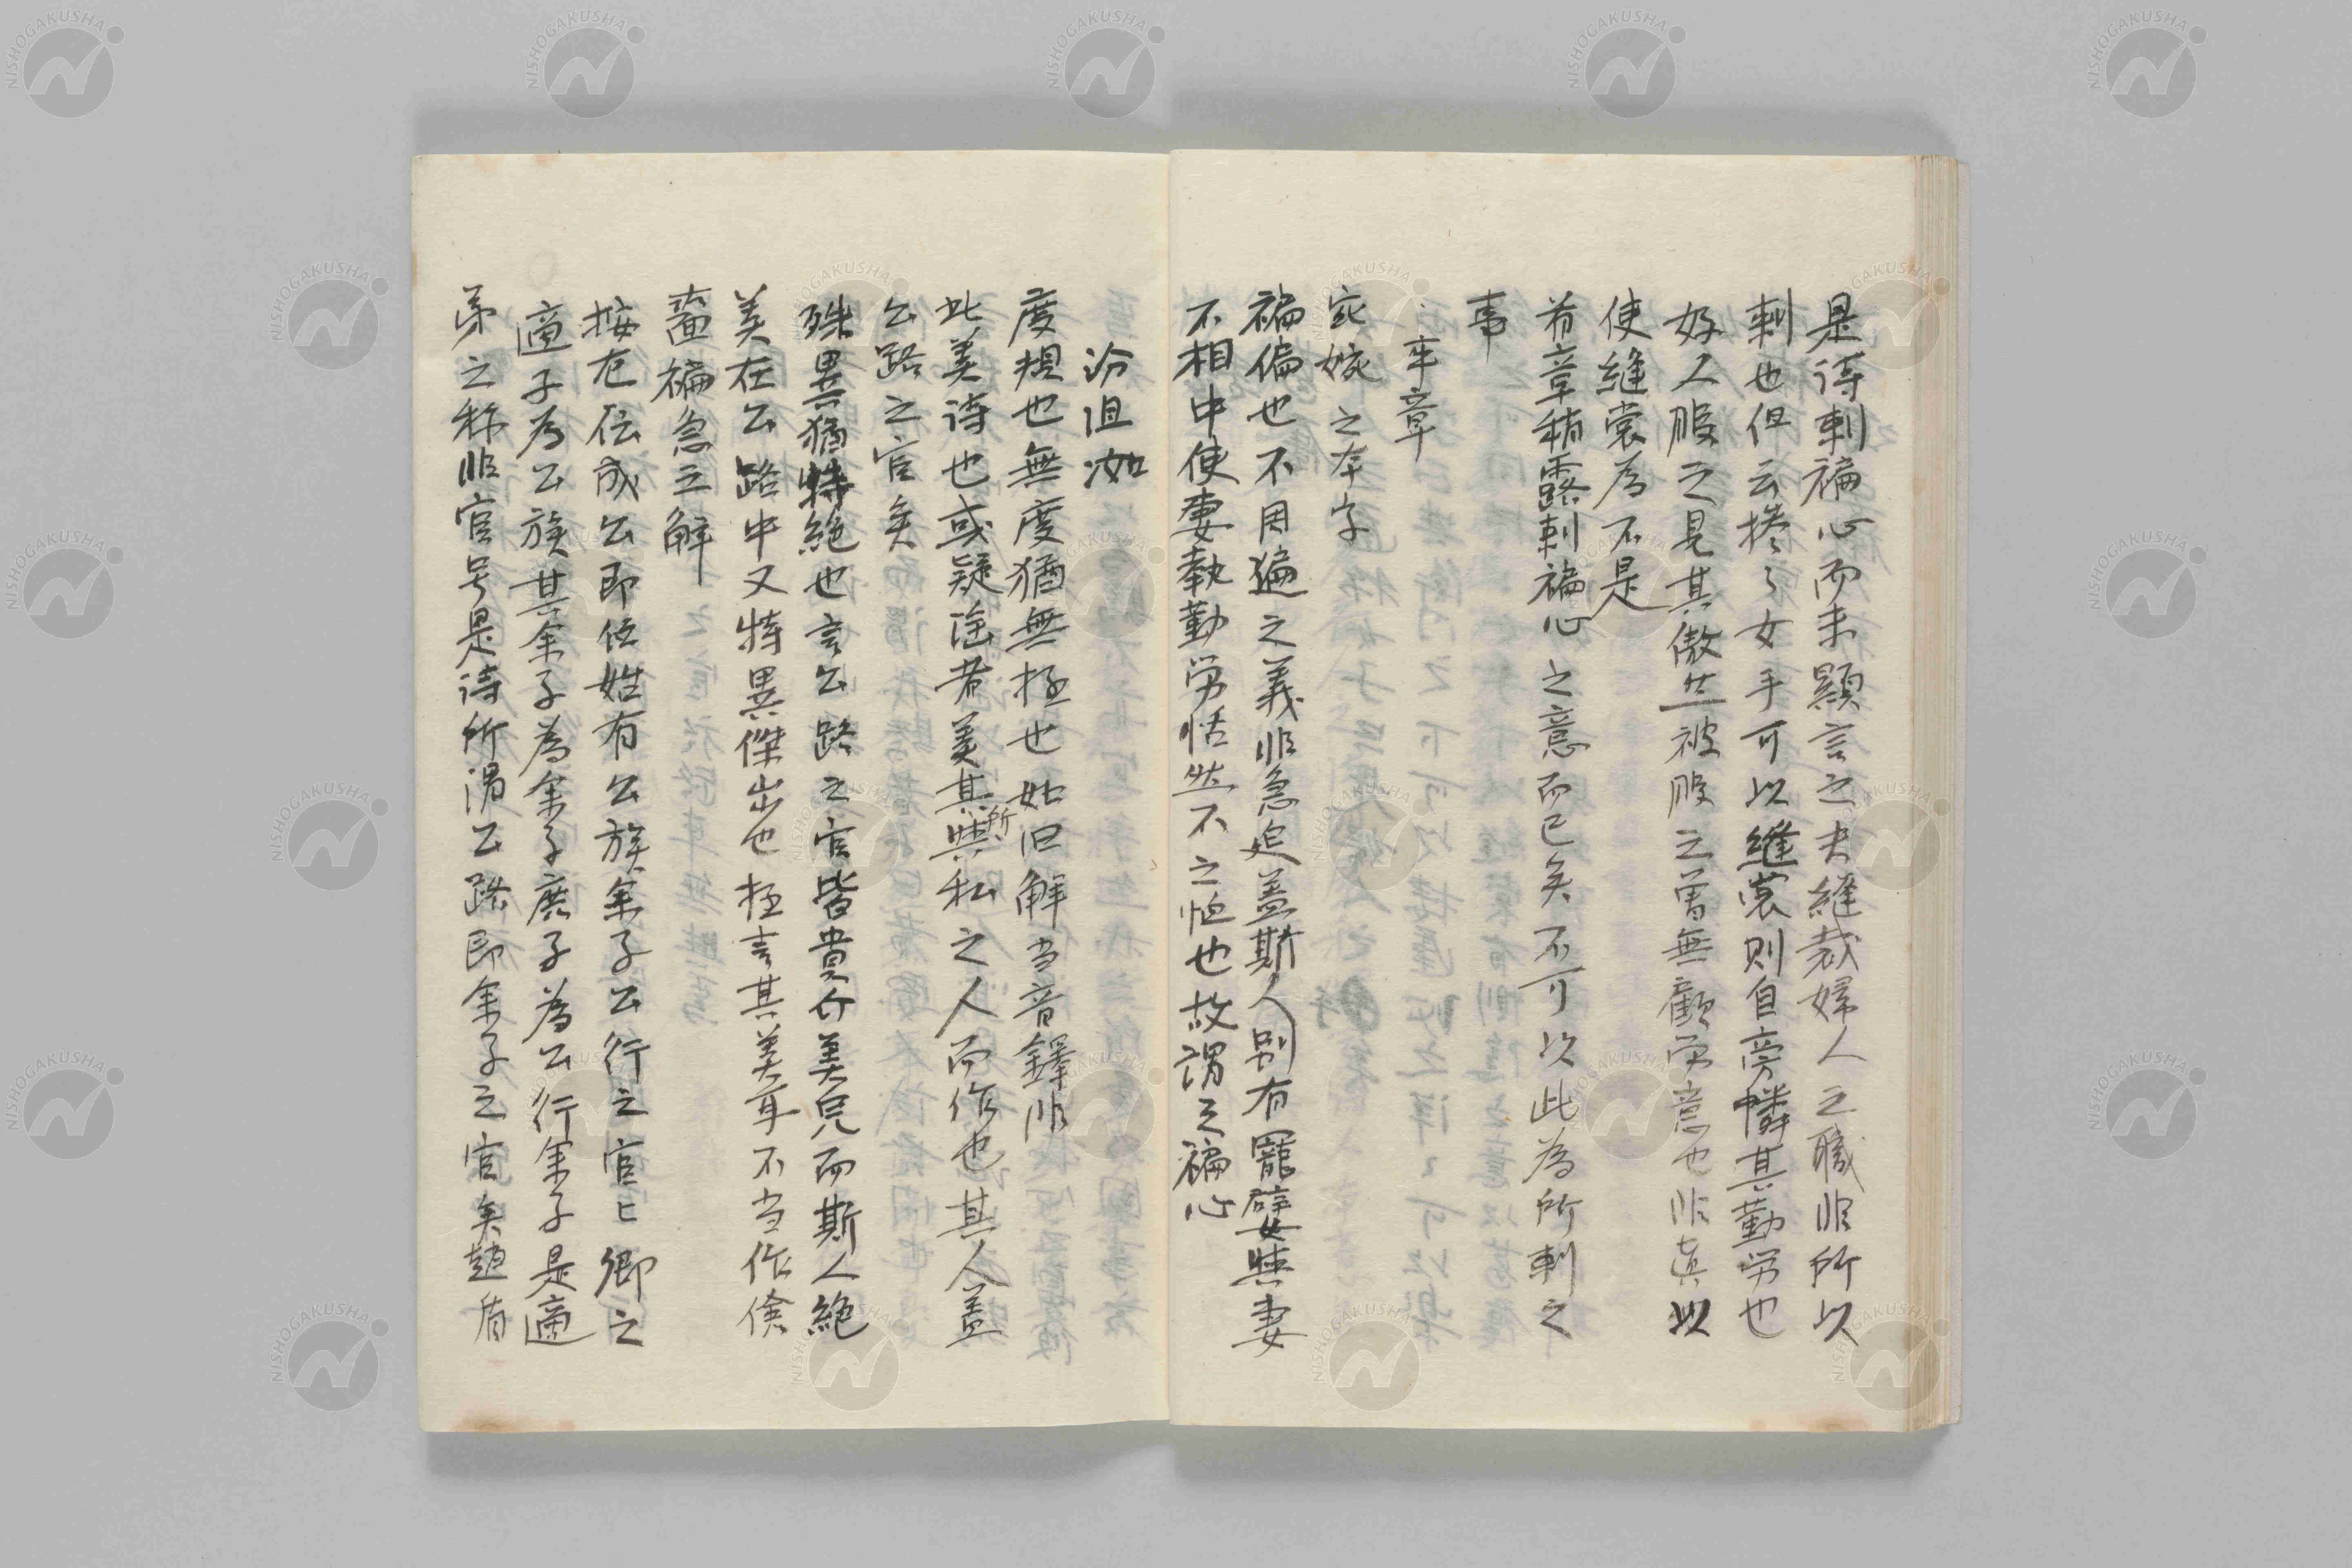 是詩刺褊心而未顕言之夫縫裁婦人之職非所以
刺也但云摻〻女手可以縫裳則自旁憐其勤労也
好人服之見其傲然被服之曽無顧労意也非真以
使縫裳為不是
首章稍露刺褊心之意而已矣不可以此為所刺之
事
卒章
宛婉之本字
褊偏也不用遍之義非急迫蓋斯人別有寵嬖與妻
不相中使妻執勤労恬然不之恤也故謂之褊心
汾沮洳
度規也無度猶無極也如旧解当音鐸非
此美詩也或疑淫者美其所與私之人而作也其人蓋
公路之官矣
殊異猶特絶也言公路之官皆貴介美皃而斯人絶
美在公路中又特異傑出也極言其美耳不当作儉
嗇褊急之解
按左伝成公即位姓有公族余子公行之官〻卿之
適子為公族其余子為余子庶子為公行余子是適
弟之称非官号是詩所謂公路即余子之官矣趙盾